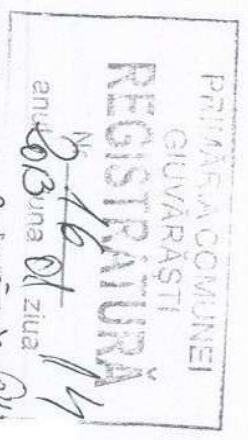 PRIMĂRIA COMUNEI
GIUVĂRĂȘTI
REGISTRATURĂ
Nr. 216
anul 2013 luna 01 ziua 14